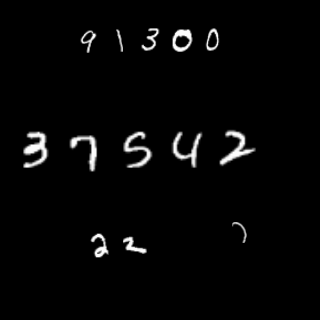 91300
37542
22